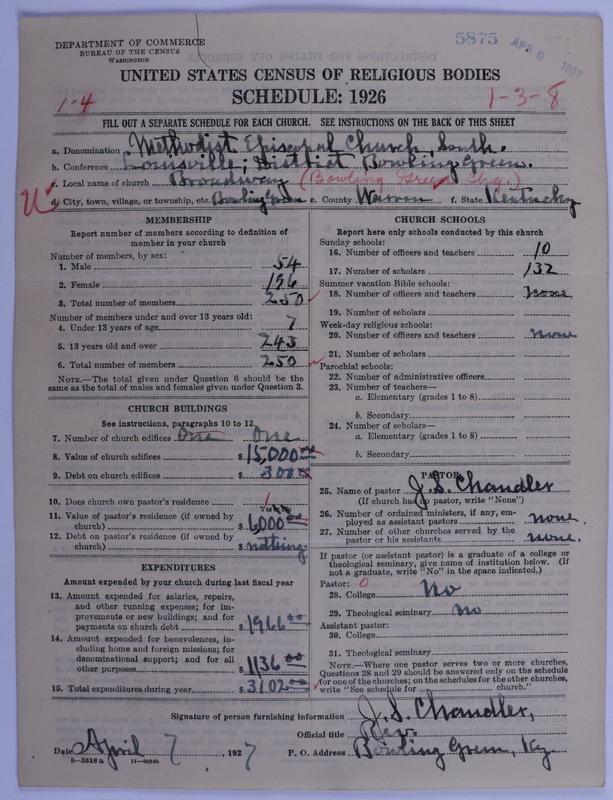 DEPARTMENT OF COMMERCE
BUREAU OF THE CENSUS
WASHINGTON
5875
APR 8 1927
UNITED STATES CENSUS OF RELIGIOUS BODIES
SCHEDULE: 1926
1-4
1-3-8
FILL OUT A SEPARATE SCHEDULE FOR EACH CHURCH. SEE INSTRUCTIONS ON THE BACK OF THIS SHEET
a. Denomination Methodist Episcopal Church, South.
b. Conference Louisville; District Bowling Green.
c. Local name of church Broadway (Bowling Green Chg.)
d. City, town, village, or township, etc. Bowling Green e. County Warren f. State Kentucky
U
MEMBERSHIP
Report number of members according to definition of member in your church
Number of members, by sex:
1. Male 54
2. Female 196
3. Total number of members 250
Number of members under and over 13 years old:
4. Under 13 years of age 7
5. 13 years old and over 243
6. Total number of members 250
NOTE.—The total given under Question 6 should be the same as the total of males and females given under Question 3.
CHURCH BUILDINGS
See instructions, paragraphs 10 to 12
7. Number of church edifices One One
8. Value of church edifices $15,000 00
9. Debt on church edifices $ 300
10. Does church own pastor's residence
Yes
11. Value of pastor's residence (if owned by church) $6000 00
12. Debt on pastor's residence (if owned by church) $ nothing
EXPENDITURES
Amount expended by your church during last fiscal year
13. Amount expended for salaries, repairs, and other running expenses; for improvements or new buildings; and for payments on church debt $1966 00
14. Amount expended for benevolences, including home and foreign missions; for denominational support; and for all other purposes $1136 00
15. Total expenditures during year $3102 00
CHURCH SCHOOLS
Report here only schools conducted by this church
Sunday schools:
16. Number of officers and teachers 10
17. Number of scholars 132
Summer vacation Bible schools:
18. Number of officers and teachers none
19. Number of scholars
Week-day religious schools:
20. Number of officers and teachers none
21. Number of scholars
Parochial schools:
22. Number of administrative officers
23. Number of teachers—
a. Elementary (grades 1 to 8)
b. Secondary
24. Number of scholars—
a. Elementary (grades 1 to 8)
b. Secondary
PASTOR
25. Name of pastor J. S. Chandler
(If church has no pastor, write "None")
26. Number of ordained ministers, if any, employed as assistant pastors none.
27. Number of other churches served by the pastor or his assistants none.
If pastor (or assistant pastor) is a graduate of a college or theological seminary, give name of institution below. (If not a graduate, write "No" in the space indicated.)
Pastor: 0
28. College No
29. Theological seminary No
Assistant pastor:
30. College
31. Theological seminary
NOTE.—Where one pastor serves two or more churches, Questions 28 and 29 should be answered only on the schedule for one of the churches; on the schedules for the other churches, write "See schedule for church."
Signature of person furnishing information J. S. Chandler,
Official title Rev.
Date April 7, 1927 P. O. Address Bowling Green, Ky.
8—5518 a